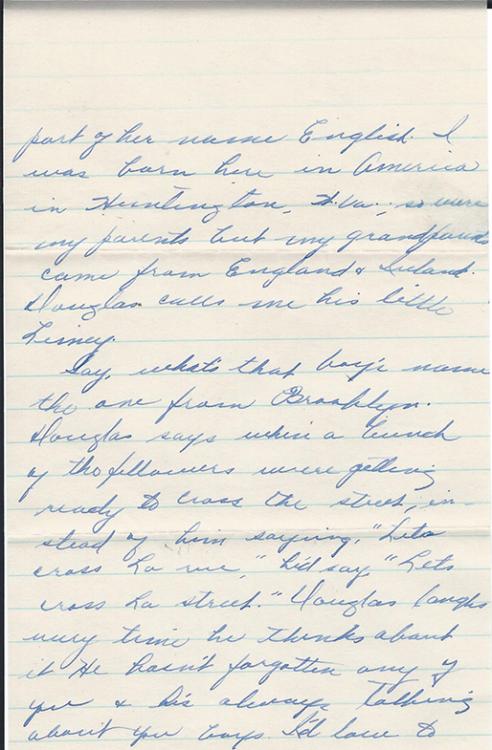 part of her name English. I
was born here in America
in Huntington, W.Va., so were
my parents but my grandparents
came from England & Ireland.
Douglas calls me his little
Limey.
Say, what's that boy's name
the one from Brooklyn.
Douglas says when a bunch
of tho fellowers were getting
ready to cross the street, in-
stead of him saying, "Lets
cross La rue," he'd say "Lets
cross La street." Douglas laughs
every time he thinks about
it He hasn't forgotten any of
you & his always talking
about you boys. I'd love to